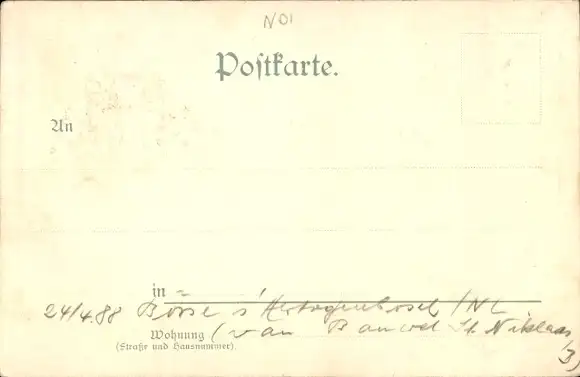 N01
Postkarte.
An
in =
24/4.88 Börse s'Hertogenbosch/NL
Wohnung (van Bauwel St. Niklaas
(Straße und Hausnummer).
/B)